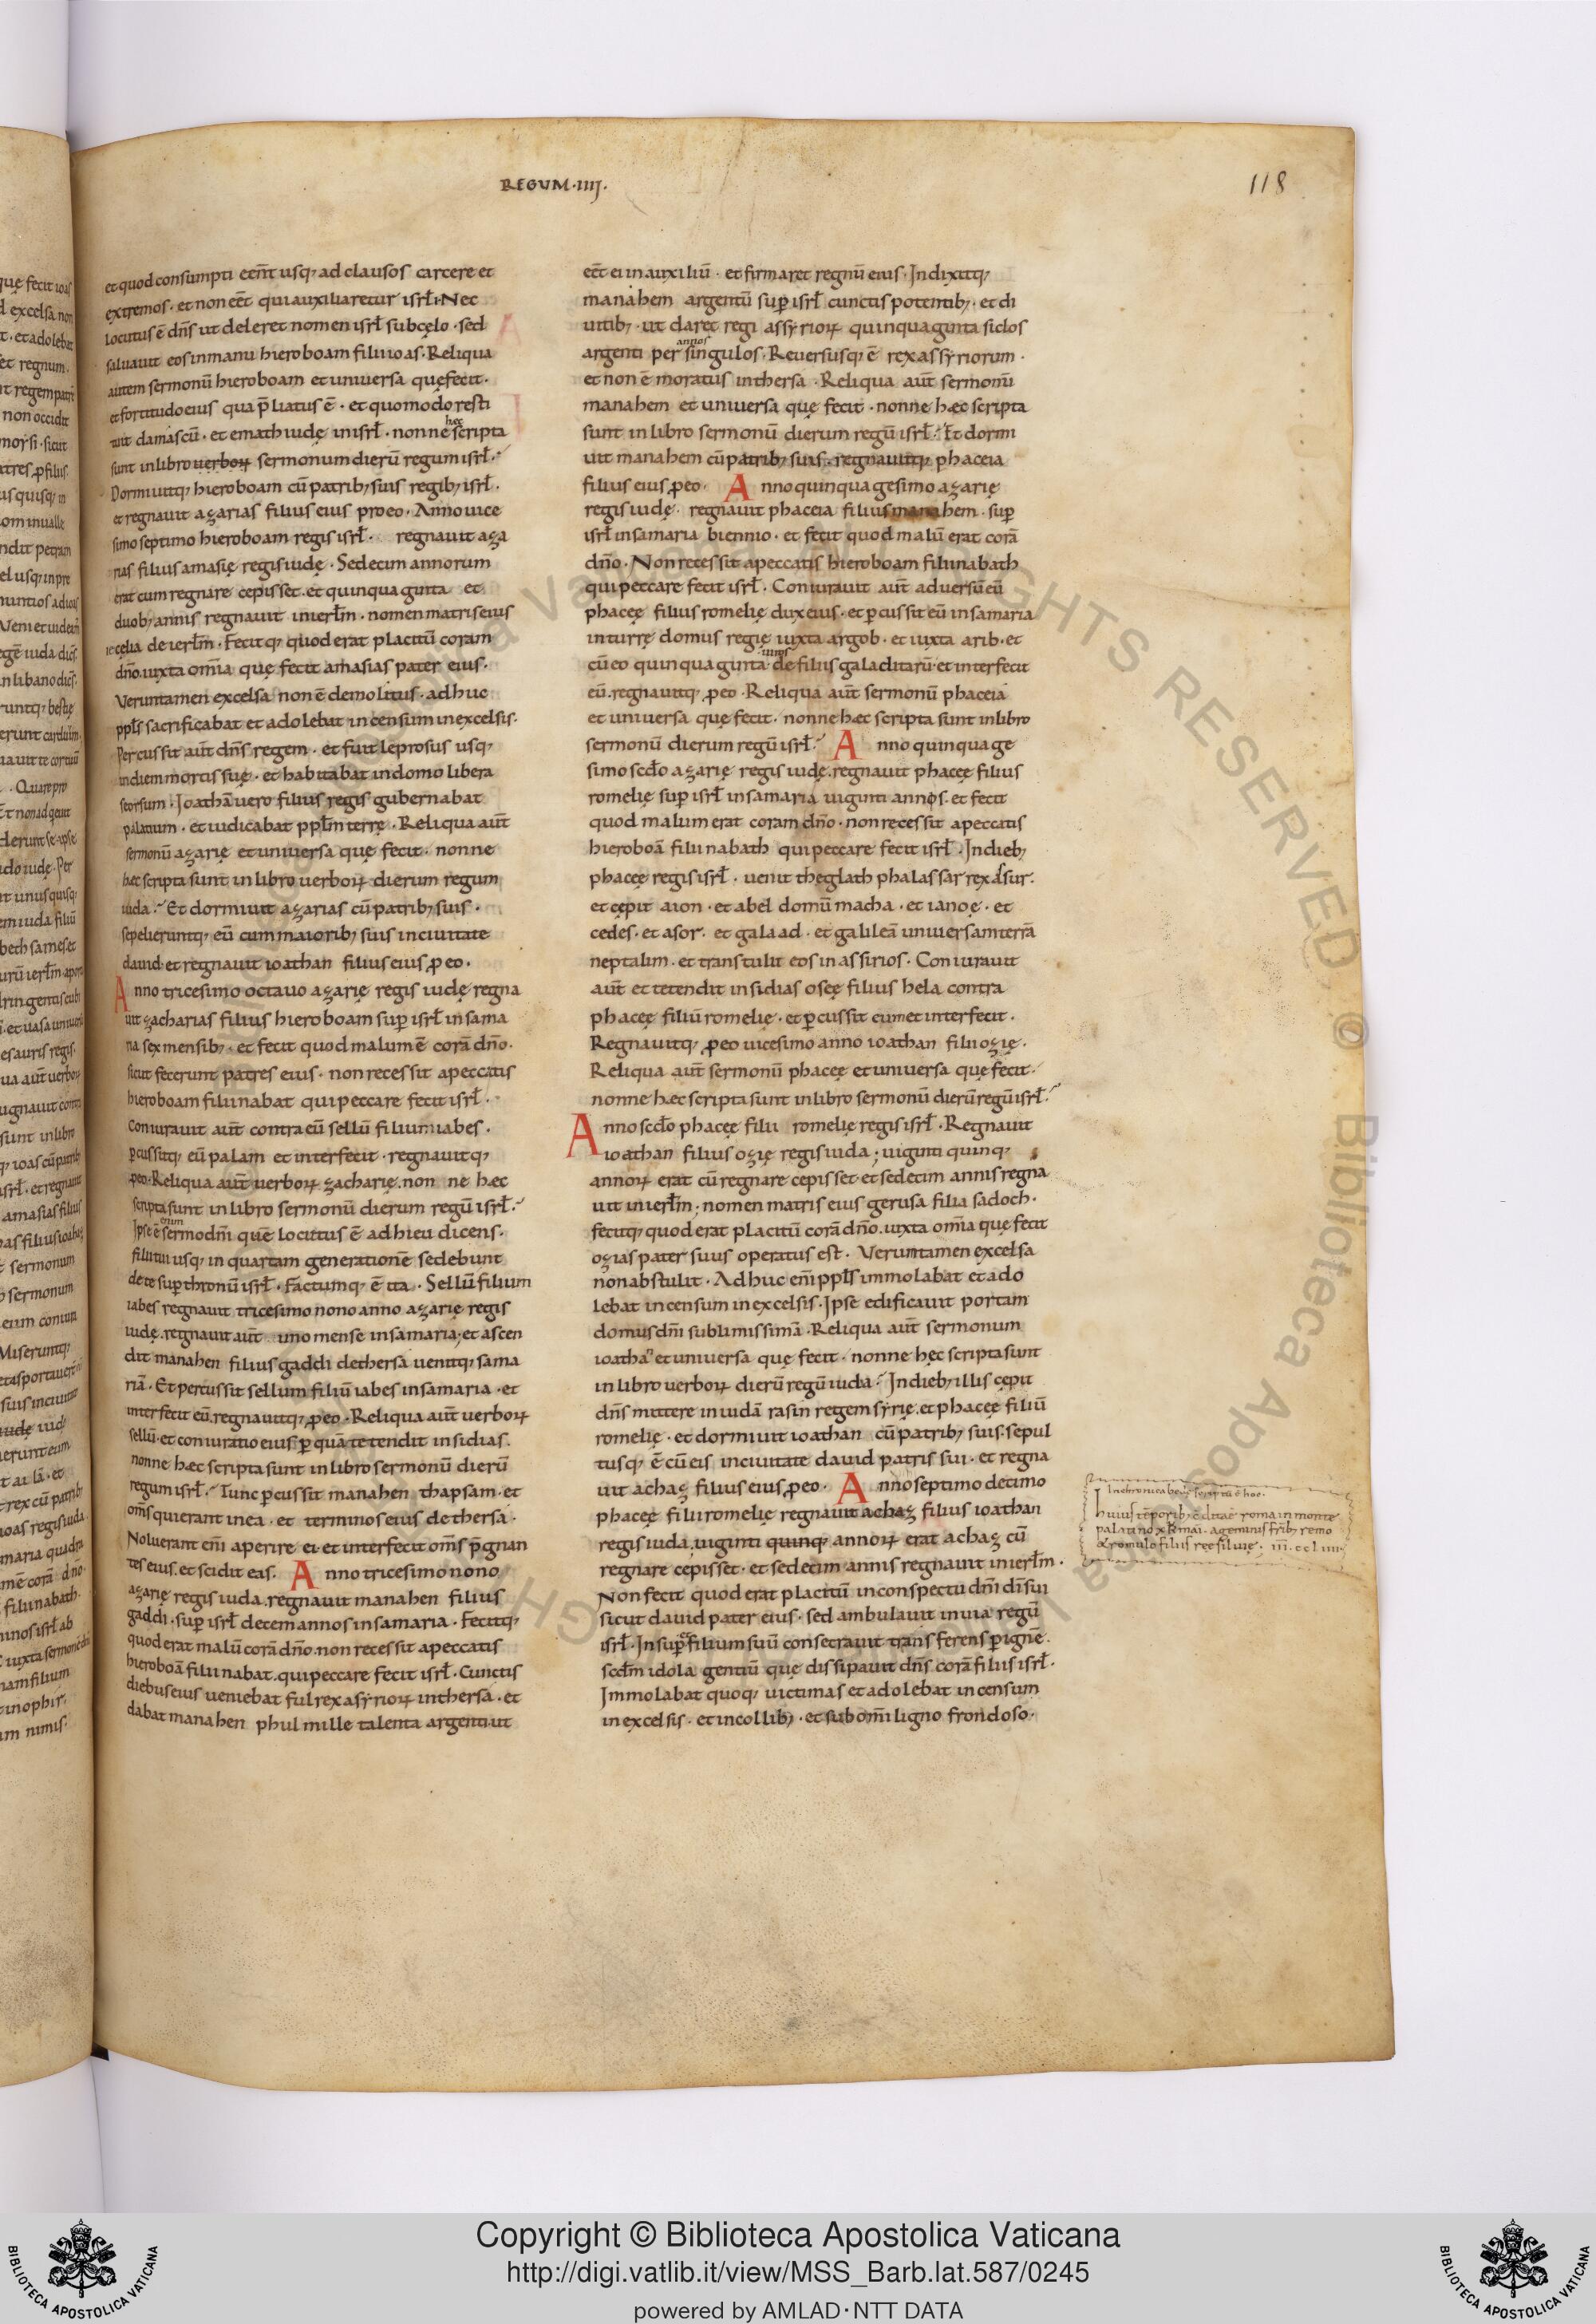 REGUM·IIIJ·
118
et quod consumpti eēnt usq; ad clausos carcere et
extremos· et non eēt qui auxiliaretur isrł· Nec
locutus ē dn̄s ut deleret nomen isrł sub cęlo· sed
saluauit eos in manu hieroboam filii ioas· Reliqua
autem sermonū hieroboam et uniuersa quę fecit·
et fortitudo eius qua p̄liatus ē· et quomodo resti
tuit damascū· et emath iudę in isrł· nonne hęc scripta
sunt in libro uerboꝝ sermonum dierū regum isrł·
Dormiuitq; hieroboam cū patrib; suis regib; isrł·
et regnauit azarias filius eius pro eo· Anno uice
simo septimo hieroboam regis isrł· regnauit aza
rias filius amasię regis iudę· Sedecim annorum
erat cum regnare cepisset· et quinquaginta et
duob; annis regnauit in ierlm̄· nomen matris eius
iecelia de ierlm̄· Fecitq; quod erat placitū coram
dn̄o· iuxta om̄ia quę fecit amasias pater eius·
Veruntamen excelsa non ē demolitus· adhuc
ppl̄s sacrificabat et adolebat incensum in excelsis·
Percussit aut̄ dn̄s regem· et fuit leprosus usq;
in diem mortis suę· et habitabat in domo libera
seorsum· Joathā uero filius regis gubernabat
palatium· et iudicabat ppl̄m terrę· Reliqua aut̄
sermonū azarię et uniuersa quę fecit· nonne
hęc scripta sunt in libro uerboꝝ dierum regum
iuda· Et dormiuit azarias cū patrib; suis·
sepelieruntq; eū cum maiorib; suis in ciuitate
dauid· et regnauit ioathan filius eius ꝓ eo·
Anno tricesimo octauo azarię regis iudę regna
uit zacharias filius hieroboam suꝑ isrł in sama
ria sex mensib;· et fecit quod malum ē corā dn̄o·
sicut fecerunt patres eius· non recessit a peccatis
hieroboam filii nabat qui peccare fecit isrł·
Coniurauit aut̄ contra eū sellū filium iabes·
ꝑcussitq; eū palam et interfecit· regnauitq;
ꝓ eo· Reliqua aut̄ uerboꝝ zacharię· non ne hęc
scripta sunt in libro sermonū dierum regū isrł·
Ipse ē enim sermo dn̄i quē locutus ē ad hieu dicens·
filii tui usq; in quartam generationē sedebunt
de te suꝑ thronū isrł· Factumq; ē ita· Sellū filium
iabes regnauit tricesimo nono anno azarię regis
iudę· regnauit aut̄ uno mense in samaria· et ascen
dit manahen filius gaddi de thersa uenitq; sama
riā· Et percussit sellum filiū iabes in samaria· et
interfecit eū· regnauitq; ꝓ eo· Reliqua aut̄ uerboꝝ
sellū· et coniuratio eius ꝑ quā tetendit insidias·
nonne hæc scripta sunt in libro sermonū dierū
regum isrł· Tunc ꝑcussit manahen thapsam· et
om̄s qui erant in ea· et terminos eius de thersa·
Noluerant en̄i aperire ei· et interfecit om̄s p̄gnan
tes eius· et scidit eas· Anno tricesimo nono
azarię regis iuda· regnauit manahen filius
gaddi· suꝑ isrł decem annos in samaria· Fecitq;
quod erat malū corā dn̄o· non recessit a peccatis
hieroboā filii nabat· qui peccare fecit isrł· Cunctis
diebus eius ueniebat ful rex asẏrioꝝ in thersa· et
dabat manahen phul mille talenta argenti· ut
eēt ei in auxiliū· et firmaret regnū eius· Indixitq;
manahem argentū suꝑ isrł cunctis potentib;· et di
uitib;· ut daret regi assẏrioꝝ quinquaginta siclos
argenti per annos singulos· Reuersusq; ē rex assẏriorum·
et non ē moratus in thersa· Reliqua aut̄ sermonū
manahem et uniuersa quę fecit· nonne hæc scripta
sunt in libro sermonū dierum regū isrł· Et dormi
uit manahem cū patrib; suis· regnauitq; phaceia
filius eius ꝓ eo· Anno quinquagesimo azarię
regis iudę· regnauit phaceia filius manahem· suꝑ
isrł in samaria biennio· et fecit quod malū erat corā
dn̄o· Non recessit a peccatis hieroboam filii nabath
qui peccare fecit isrł· Coniurauit aut̄ aduersū eū
phacęe filius romelię dux eius· et ꝑcussit eū in samaria
in turrę domus regię iuxta argob· et iuxta arib· et
cū eo quinquaginta uiros de filiis galaditarū· et interfecit
eū· regnauitq; ꝓ eo· Reliqua aut̄ sermonū phaceia
et uniuersa quę fecit· nonne hæc scripta sunt in libro
sermonū dierum regū isrł· Anno quinquage
simo scd̄o azarię regis iudę· regnauit phacęe filius
romelię suꝑ isrł in samaria uiginti annos· et fecit
quod malum erat coram dn̄o· non recessit a peccatis
hieroboā filii nabath qui peccare fecit isrł· In dieb;
phacęe regis isrł· uenit theglath phalassar rex assur·
et cępit aion· et abel domū macha· et ianoę· et
cedes· et asor· et galaad· et galileā uniuersam terrā
neptalim· et transtulit eos in assirios· Coniurauit
aut̄ et tetendit insidias oseę filius hela contra
phacęe filiū romelię· et ꝑcussit eum et interfecit·
Regnauitq; ꝓ eo uicesimo anno ioathan filii ozię·
Reliqua aut̄ sermonū phacęe et uniuersa quę fecit·
nonne hæc scripta sunt in libro sermonū dierū regū isrł·
Anno scd̄o phacęe filii romelię regis isrł· Regnauit
ioathan filius ozię regis iuda; uiginti quinq;
annoꝝ erat cū regnare cepisset· et sedecim annis regna
uit in ierlm̄; nomen matris eius gerusa filia sadoch·
fecitq; quod erat placitū corā dn̄o· iuxta om̄ia quę fecit
ozias pater suus operatus est· Veruntamen excelsa
non abstulit· Adhuc en̄i ppl̄s immolabat et ado
lebat incensum in excelsis· Ipse edificauit portam
domus dn̄i sublimissimā· Reliqua aut̄ sermonum
ioathan et uniuersa quę fecit· nonne hęc scripta sunt
in libro uerboꝝ dierū regū iuda· In dieb; illis cępit
dn̄s mittere in iudā rasin regem sẏrię· et phacęe filiū
romelię· et dormiuit ioathan cū patrib; suis· sepul
tusq; ē cū eis in ciuitate dauid patris sui· et regna
uit achaz filius eius ꝓ eo· Anno septimo decimo
phacęe filii romelię regnauit achaz filius ioathan
regis iuda· uiginti quinq; annoꝝ erat achaz cū
regnare cepisset· et sedecim annis regnauit in ierlm̄·
Non fecit quod erat placitū in conspectu dn̄i dī sui
sicut dauid pater eius· sed ambulauit in uia regū
isrł· Insuꝑ et filium suū consecrauit transferens ꝑ ignē·
scd̄m idola gentiū quę dissipauit dn̄s corā filiis isrł·
Immolabat quoq; uictimas et adolebat incensum
in excelsis· et in collib;· et sub om̄i ligno frondoso·
scriptū ē hoc·
huius tēporib; roma in monte
palatino geminis frīb; remo
& romulo filiis
Copyright © Biblioteca Apostolica Vaticana
http://digi.vatlib.it/view/MSS_Barb.lat.587/0245
powered by AMLAD·NTT DATA
BIBLIOTECA APOSTOLICA VATICANA
BIBLIOTECA APOSTOLICA VATICANA